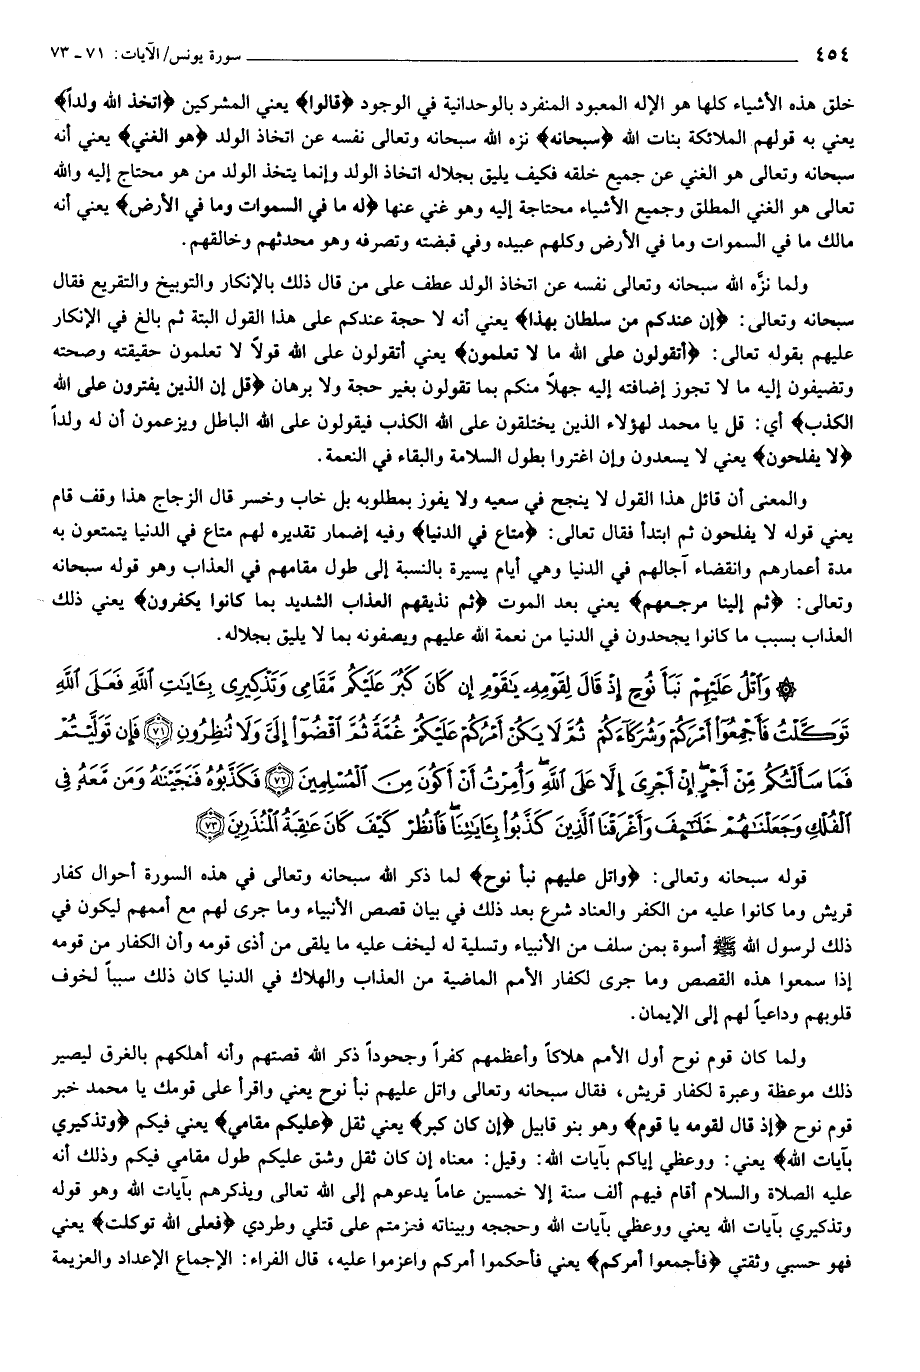 ٤٥٤ سورة يونس/ الآيات: ٧١ ـ ٧٣
خلق هذه الأشياء كلها هو الإله المعبود المنفرد بالوحدانية في الوجود ﴿قالوا﴾ يعني المشركين ﴿اتخذ الله ولداً﴾
يعني به قولهم الملائكة بنات الله ﴿سبحانه﴾ نزه الله سبحانه وتعالى نفسه عن اتخاذ الولد ﴿هو الغني﴾ يعني أنه
سبحانه وتعالى هو الغني عن جميع خلقه فكيف يليق بجلاله اتخاذ الولد وإنما يتخذ الولد من هو محتاج إليه والله
تعالى هو الغني المطلق وجميع الأشياء محتاجة إليه وهو غني عنها ﴿له ما في السموات وما في الأرض﴾ يعني أنه
مالك ما في السموات وما في الأرض وكلهم عبيده وفي قبضته وتصرفه وهو محدثهم وخالقهم.
ولما نزَّه الله سبحانه وتعالى نفسه عن اتخاذ الولد عطف على من قال ذلك بالإنكار والتوبيخ والتقريع فقال
سبحانه وتعالى: ﴿إن عندكم من سلطان بهذا﴾ يعني أنه لا حجة عندكم على هذا القول البتة ثم بالغ في الإنكار
عليهم بقوله تعالى: ﴿أتقولون على الله ما لا تعلمون﴾ يعني أتقولون على الله قولاً لا تعلمون حقيقته وصحته
وتضيفون إليه ما لا تجوز إضافته إليه جهلاً منكم بما تقولون بغير حجة ولا برهان ﴿قل إن الذين يفترون على الله
الكذب﴾ أي: قل يا محمد لهؤلاء الذين يختلقون على الله الكذب فيقولون على الله الباطل ويزعمون أن له ولداً
﴿لا يفلحون﴾ يعني لا يسعدون وإن اغتروا بطول السلامة والبقاء في النعمة.
والمعنى أن قائل هذا القول لا ينجح في سعيه ولا يفوز بمطلوبه بل خاب وخسر قال الزجاج هذا وقف قام
يعني قوله لا يفلحون ثم ابتدأ فقال تعالى: ﴿متاع في الدنيا﴾ وفيه إضمار تقديره لهم متاع في الدنيا يتمتعون به
مدة أعمارهم وانقضاء آجالهم في الدنيا وهي أيام يسيرة بالنسبة إلى طول مقامهم في العذاب وهو قوله سبحانه
وتعالى: ﴿ثم إلينا مرجعهم﴾ يعني بعد الموت ﴿ثم نذيقهم العذاب الشديد بما كانوا يكفرون﴾ يعني ذلك
العذاب بسبب ما كانوا يجحدون في الدنيا من نعمة الله عليهم ويصفونه بما لا يليق بجلاله.
۞ وَٱتۡلُ عَلَيۡهِمۡ نَبَأَ نُوحٍ إِذۡ قَالَ لِقَوۡمِهِۦ يَٰقَوۡمِ إِن كَانَ كَبُرَ عَلَيۡكُم مَّقَامِي وَتَذۡكِيرِي بِـَٔايَٰتِ ٱللَّهِ فَعَلَى ٱللَّهِ
تَوَكَّلۡتُ فَأَجۡمِعُوٓاْ أَمۡرَكُمۡ وَشُرَكَآءَكُمۡ ثُمَّ لَا يَكُنۡ أَمۡرُكُمۡ عَلَيۡكُمۡ غُمَّةٗ ثُمَّ ٱقۡضُوٓاْ إِلَيَّ وَلَا تُنظِرُونِ ٧١ فَإِن تَوَلَّيۡتُمۡ
فَمَا سَأَلۡتُكُم مِّنۡ أَجۡرٍۖ إِنۡ أَجۡرِيَ إِلَّا عَلَى ٱللَّهِۖ وَأُمِرۡتُ أَنۡ أَكُونَ مِنَ ٱلۡمُسۡلِمِينَ ٧٢ فَكَذَّبُوهُ فَنَجَّيۡنَٰهُ وَمَن مَّعَهُۥ فِي
ٱلۡفُلۡكِ وَجَعَلۡنَٰهُمۡ خَلَٰٓئِفَ وَأَغۡرَقۡنَا ٱلَّذِينَ كَذَّبُواْ بِـَٔايَٰتِنَاۖ فَٱنظُرۡ كَيۡفَ كَانَ عَٰقِبَةُ ٱلۡمُنذَرِينَ ٧٣
قوله سبحانه وتعالى: ﴿واتل عليهم نبأ نوح﴾ لما ذكر الله سبحانه وتعالى في هذه السورة أحوال كفار
قريش وما كانوا عليه من الكفر والعناد شرع بعد ذلك في بيان قصص الأنبياء وما جرى لهم مع أممهم ليكون في
ذلك لرسول الله ﷺ أسوة بمن سلف من الأنبياء وتسلية له ليخف عليه ما يلقى من أذى قومه وأن الكفار من قومه
إذا سمعوا هذه القصص وما جرى لكفار الأمم الماضية من العذاب والهلاك في الدنيا كان ذلك سبباً لخوف
قلوبهم وداعياً لهم إلى الإيمان.
ولما كان قوم نوح أول الأمم هلاكاً وأعظمهم كفراً وجحوداً ذكر الله قصتهم وأنه أهلكهم بالغرق ليصير
ذلك موعظة وعبرة لكفار قريش، فقال سبحانه وتعالى واتل عليهم نبأ نوح يعني واقرأ على قومك يا محمد خبر
قوم نوح ﴿إذ قال لقومه يا قوم﴾ وهو بنو قابيل ﴿إن كان كبر﴾ يعني ثقل ﴿عليكم مقامي﴾ يعني فيكم ﴿وتذكيري
بآيات الله﴾ يعني: ووعظي إياكم بآيات الله: وقيل: معناه إن كان ثقل وشق عليكم طول مقامي فيكم وذلك أنه
عليه الصلاة والسلام أقام فيهم ألف سنة إلا خمسين عاماً يدعوهم إلى الله تعالى ويذكرهم بآيات الله وهو قوله
وتذكيري بآيات الله يعني ووعظي بآيات الله وحججه وبيناته فعزمتم على قتلي وطردي ﴿فعلى الله توكلت﴾ يعني
فهو حسبي وثقتي ﴿فأجمعوا أمركم﴾ يعني فأحكموا أمركم واعزموا عليه، قال الفراء: الإجماع الإعداد والعزيمة